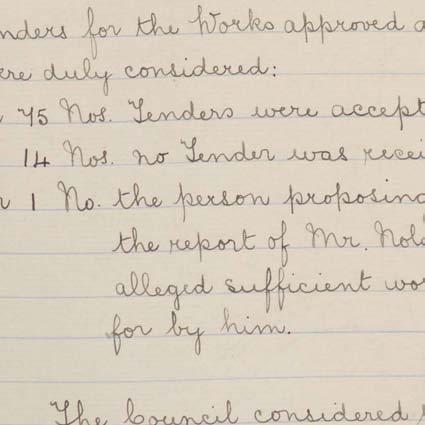 nders for the Works approved a
ere duly considered:
75 Nos. Tenders were accept
14 Nos. no Tender was recei
r 1 No. the person proposing
the report of Mr. Nola
alleged sufficient wor
for by him.
The Council considered